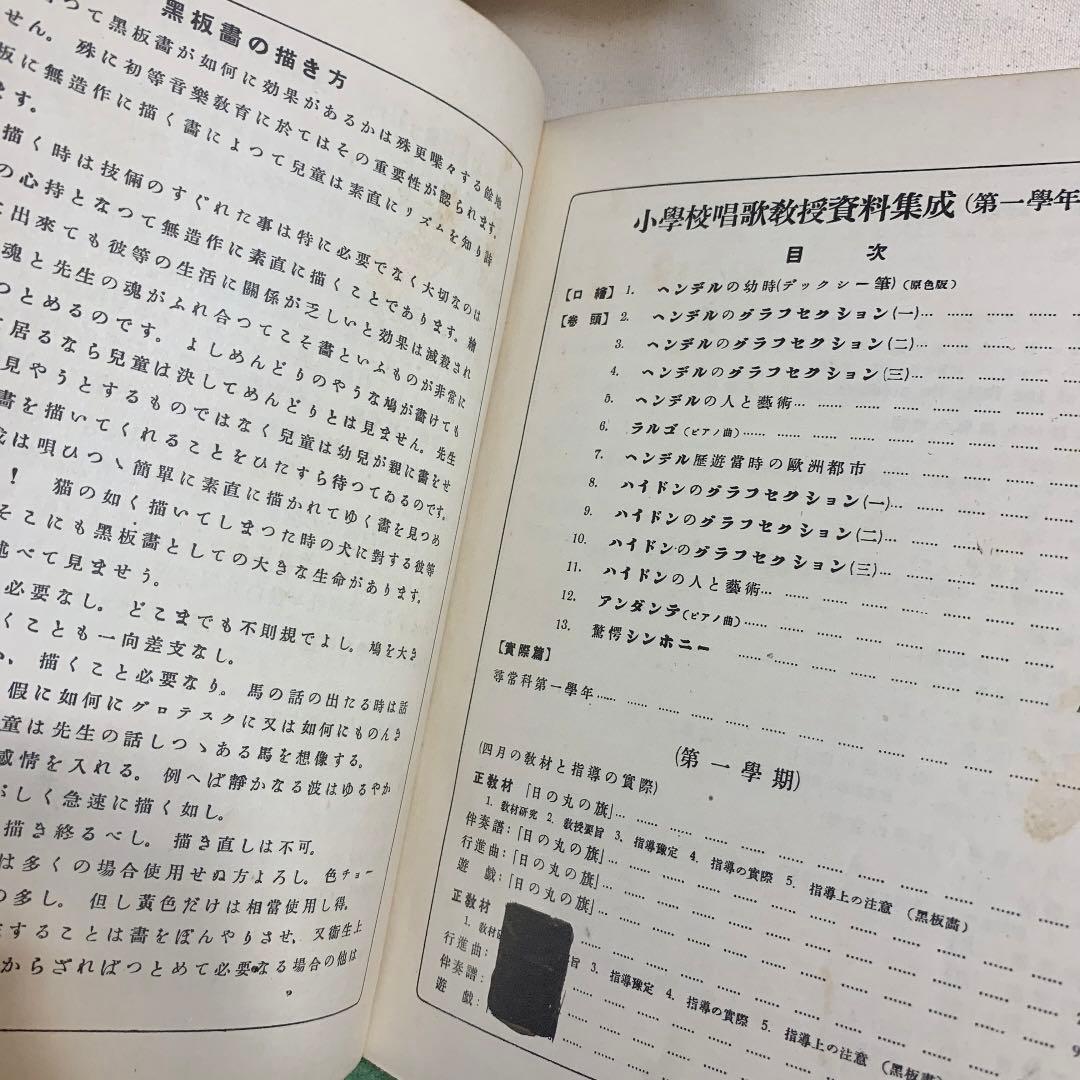 黑板畫の描き方
つて黑板畫が如何に効果があるかは殊更喋々する餘地
せん。殊に初等音樂敎育に於てはその重要性が認られます。
板に無造作に描く畵によつて兒童は素直にリズムを知り詩
ます。
描く時は技倆のすぐれた事は特に必要でなく大切なのは
の心持となつて無造作に素直に描くことであります。繪
出來ても彼等の生活に關係が乏しいと効果は減殺され
魂と先生の魂がふれ合つてこそ畵といふものが非常に
つとめるのです。よしめんどりのやうな鳩が書けても
居るなら兒童は決してめんどりとは見ません。先生
見やうとするものではなく兒童は幼兒が親に畵をせ
畵を描いてくれることをひたすら待つてゐるのです。
は唄ひつゝ簡單に素直に描かれてゆく畵を見つめ
！　猫の如く描いてしまつた時の犬に對する彼等
そこにも黑板畵としての大きな生命があります。
述べて見ませう。
必要なし。どこまでも不則規でよし。鳩を大き
くことも一向差支なし。
描くこと必要なり。馬の話の出たる時は話
假に如何にグロテスクに又は如何にものんき
童は先生の話しつゝある馬を想像する。
感情を入れる。例へば靜かなる波はゆるやか
がしく急速に描く如し。
描き終るべし。描き直しは不可。
は多くの場合使用せぬ方よろし。色チョー
の多し。但し黃色だけは相當使用し得。
することは畵をぼんやりさせ、又衞生上
からざればつとめて必要なる場合の他は
9
小學校唱歌敎授資料集成(第一學年
目　次
【口繪】 1. ヘンデルの幼時(デックシー筆)(原色版)
【卷頭】 2. ヘンデルのグラフセクション(一)…… …… …… ……
3. ヘンデルのグラフセクション(二)…… …… …… ……
4. ヘンデルのグラフセクション(三)… …… …… ……
5. ヘンデルの人と藝術… …… …… …… ……
6. ラルゴ(ピアノ曲)…… …… …… …… ……
7. ヘンデル歷遊當時の歐洲都市 …… …… ……
8. ハイドンのグラフセクション(一)… …… …… ……
9. ハイドンのグラフセクション(二)… …… …… ……
10. ハイドンのグラフセクション(三)… …… …… ……
11. ハイドンの人と藝術… …… …… …… ……
12. アンダンテ(ピアノ曲)…… …… …… …… ……
13. 驚愕シンホニー …… …… …… …… ……
【實際篇】
尋常科第一學年…… …… …… …… …… ……
(第一學期)
(四月の敎材と指導の實際)
正敎材 「日の丸の旗」… …… …… …… ……
1. 敎材硏究 2. 敎授要旨 3. 指導豫定 4. 指導の實際 5. 指導上の注意 (黑板畵)
伴奏譜:「日の丸の旗」… …… …… …… ……
行進曲:「日の丸の旗」… …… …… …… ……
遊　戲:「日の丸の旗」… …… …… …… ……
正敎材
1. 敎材硏 旨 3. 指導豫定 4. 指導の實際 5. 指導上の注意 (黑板畵)
行進曲:
伴奏譜:
遊　戲:「